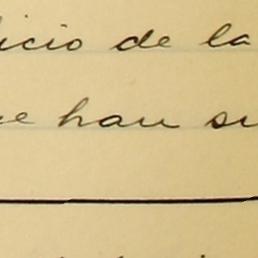 icio de la
e han su